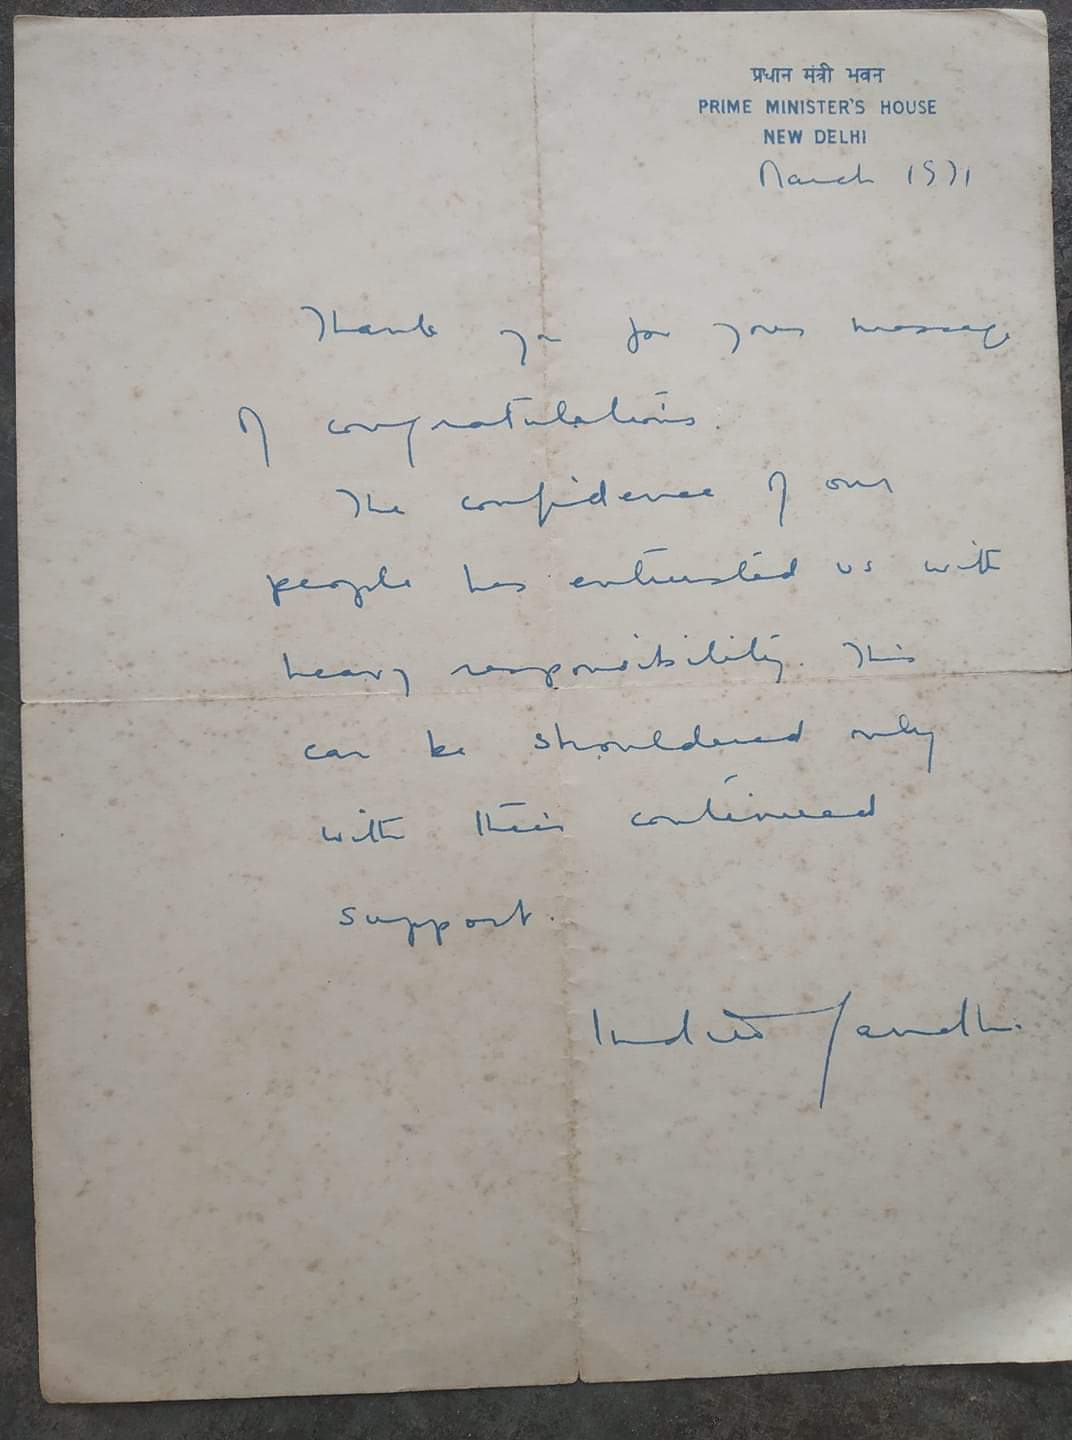 प्रधान मंत्री भवन
PRIME MINISTER'S HOUSE
NEW DELHI
March 1971
Thank you for your message
of congratulations.
The confidence of our
people has entrusted us with
heavy responsibility. This
can be shouldered only
with their continued
support.
Indira Gandhi